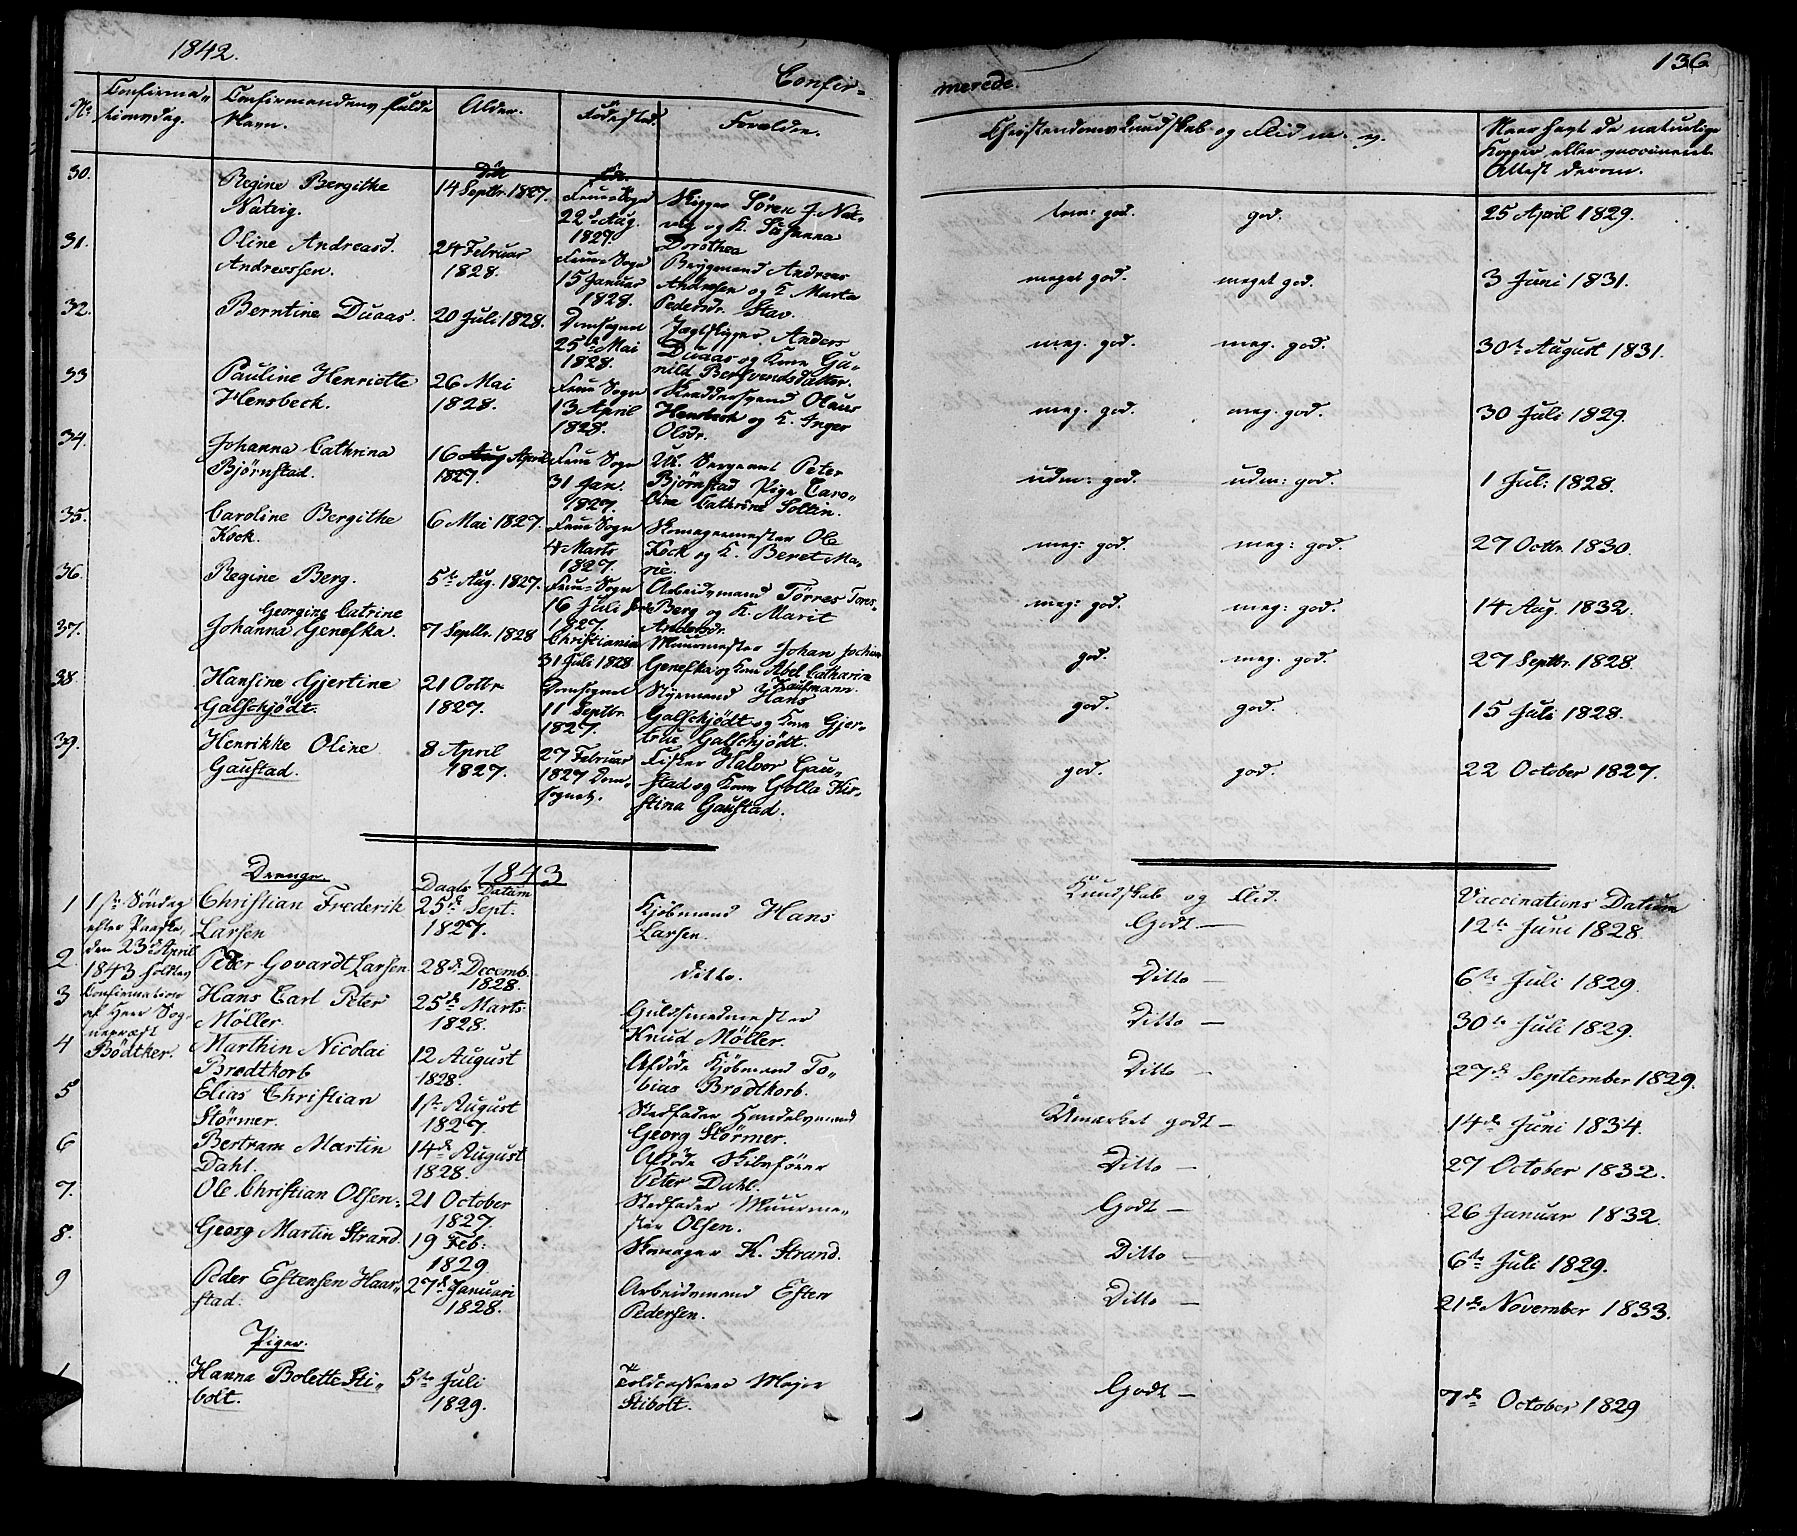 1842.
136
Confir-
merede.
No
Confirma-
tionsdag.
Confirmandens fulde
Navn.
Alder.
Födested.
Forældre.
Christendoms Kundskab og Flid m. v.
Naar havt de naturlige
Kopper eller vaccineret
Attest derom.
30.
Regine Bergithe
Natvig.
Döbt
14 Septbr. 1827.
Föd.
Frue Sogn
22d Aug.
1827.
Skipper Sören J. Nat-
vig og K. Susanna
Dorothea
tem: god.
god.
25 April 1829.
31.
Oline Andreasd.
Andressen.
24 Februar
1828.
Frue Sogn
15 Januar
1828.
Brygmand Andreas
Andresen og K Marta
Pedersdr. Stav.
meget god.
meget god.
3 Juni 1831.
32.
Berntine Duaas.
20 Juli 1828.
Domsognet
25de Mai
1828.
Jægtskipper Anders
Duaas og Kone Gu-
nild Bersvendsdatter.
meg. god.
meg. god.
30te August 1831.
33
Pauline Henriette
Hensbeck.
26 Mai
1828.
Frue Sogn
13 April
1828.
Skreddersvend Olaus
Hensbeck og K. Inger
Olsdr.
meg. god.
meg. god.
30 Juli 1829.
34.
Johanna Cathrina
Björnstad.
16 Aug April
1827.
Frue Sogn
31 Jan.
1827.
UK. Sergeant Peter
Björnstad Pige Caro-
line Cathrine Soltin.
udm: god.
udm: god.
1 Jul: 1828.
35.
Caroline Bergithe
Kock.
6 Mai 1827.
Frue Sogn
4 Marts
1827.
Skomagermester Ole
Kock og K. Beret Ma-
rie.
meg: god.
meg: god.
27 Octbr. 1830.
36.
Regine Berg.
5te Aug. 1827.
Frue Sogn
16 Juli
1827.
Arbeidsmand Törres Tores-
Berg og K. Marit
Andersdr.
meg: god.
meg: god.
14 Aug. 1832.
37.
Georgine Catrine
Johanna Genefka.
7 Septbr. 1828
Christiania
31 Juli 1828
Muurmester Johan Jochim
Genefka og Kone Abel Catharin
Kaufmann.
god.
meg. god.
27 Septbr. 1828.
38.
Hansine Gjertine
Galschjödt.
21 Octbr
1827.
Domsognet
11 Septbr.
1827.
Styrmand Hans
Galschjödt og Kone Gjer-
true Galschjödt.
god.
god.
15 Juli 1828.
39.
Henrikke Oline
Gaustad.
8 April
1827.
27 Februar
1827 Dom-
sognet.
Fisker Halvor Gau-
stad og Kone Golla Kir-
stina Gaustad.
god.
god.
22 October 1827.
1843
Drenge.
Daabs Datum
Kundskab og Flid.
Vaccinations Datum
1
1ste Söndag
efter Paaske,
den 23d April
1843 holdtes
Confirmation
af Herr Sog-
nepræst
Bödtker.
Christian Frederik
Larsen
25de Sept.
1827.
Kjöbmand Hans
Larsen.
Godt —
12te Juni 1828.
2
Peter Govardt Larsen.
28de Decemb.
1828.
Ditto.
Ditto —
6te Juli 1829.
3
Hans Carl Peter
Möller.
25de Marts
1828.
Guldsmedmester
Knud Möller.
Ditto —
30te Juli 1829.
4
Marthin Nicolai
Brodtkorb
12 August
1828.
Afdöde Kjöbmand To-
bias Brodtkorb.
Ditto —
27de September 1829.
5
Elias Christian
Störmer.
1ste August
1827.
Stedfader Handelsmand
Georg Störmer.
Umærket godt —
14de Juni 1834.
6
Bertram Martin
Dahl.
14de August
1828.
Afdöde Skibsförer
Peter Dahl.
Ditto —
27 October 1832.
7.
Ole Christian Olsen.
21 October
1827.
Stedfader Muurme-
ster Olsen.
Godt —
26 Januar 1832.
8.
Georg Martin Strand
19 Feb:
1829
Skomager K. Strand.
Ditto —
6te Juli 1829.
9
Peder Estensen Haar-
stad.
27de Januari
1828.
Arbeidsmand Esten
Pedersen.
Ditto —
21de November 1833.
Piger.
1
Hanna Bolette Sti-
bolt.
5te Juli
1829.
Toldcasserer Major
Stibolt.
Godt —
7de October 1829